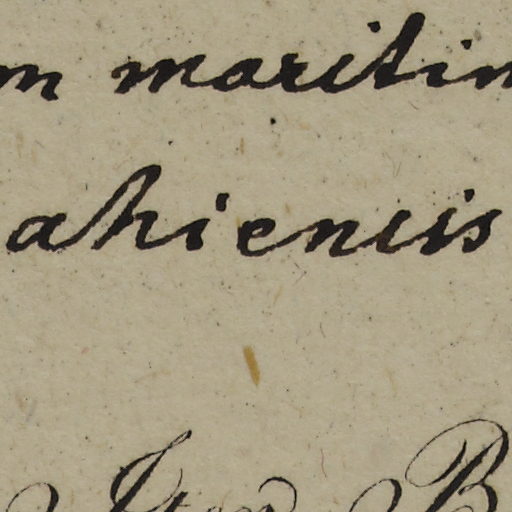 m maritim
ahiensis
Iter B